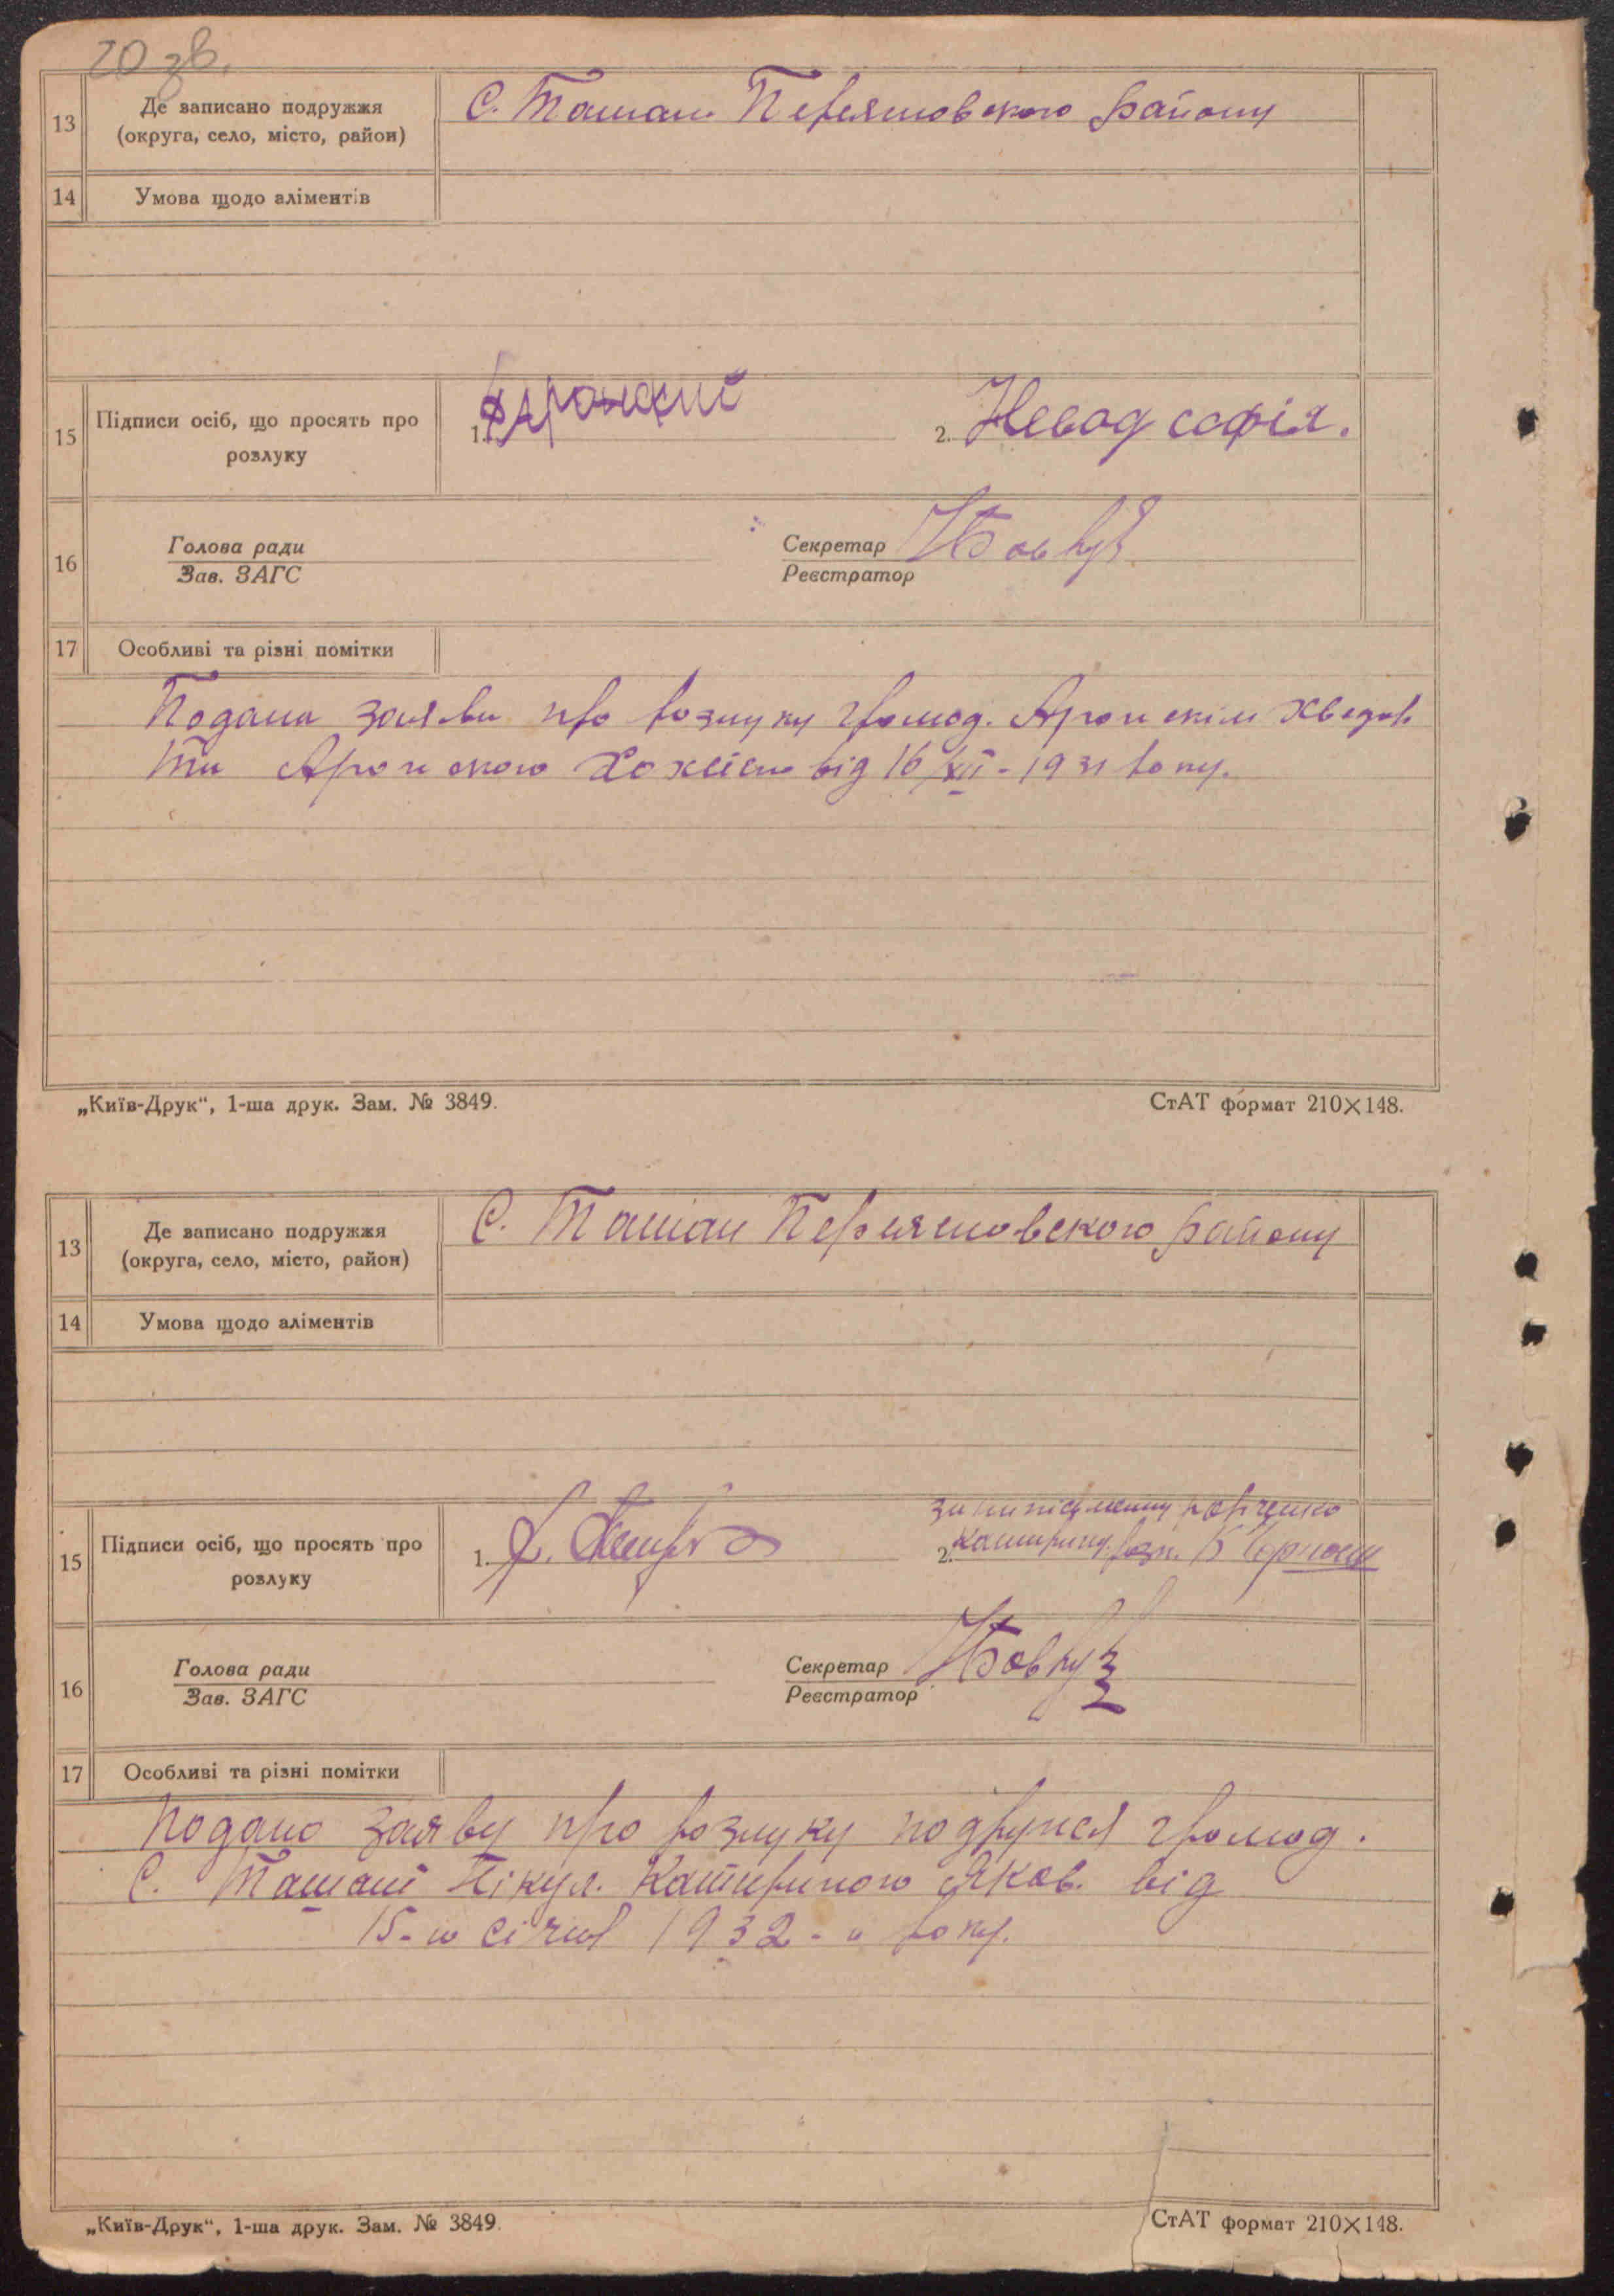 20 зв.
13
Де записано подружжя
(округа, село, місто, район)
С. Ташань Переяславського району
14
Умова щодо аліментів
15
Підписи осіб, що просять про
розлуку
1.
2. Невод софія.
16
Голова ради
Зав. ЗАГС
Секретар
Реєстратор
17
Особливі та різні помітки
Подана заява про розлуку громад.
від 16/XII - 1931 року.
„Київ-Друк“, 1-ша друк. Зам. № 3849.
СтАТ формат 210×148.
13
Де записано подружжя
(округа, село, місто, район)
С. Ташань Переяславського району
14
Умова щодо аліментів
15
Підписи осіб, що просять про
розлуку
1.
2.
16
Голова ради
Зав. ЗАГС
Секретар
Реєстратор
17
Особливі та різні помітки
Подано заяву про розлуку громад.
С. Ташані Яков. від
15-го січня 1932 - о року.
„Київ-Друк“, 1-ша друк. Зам. № 3849.
СтАТ формат 210×148.